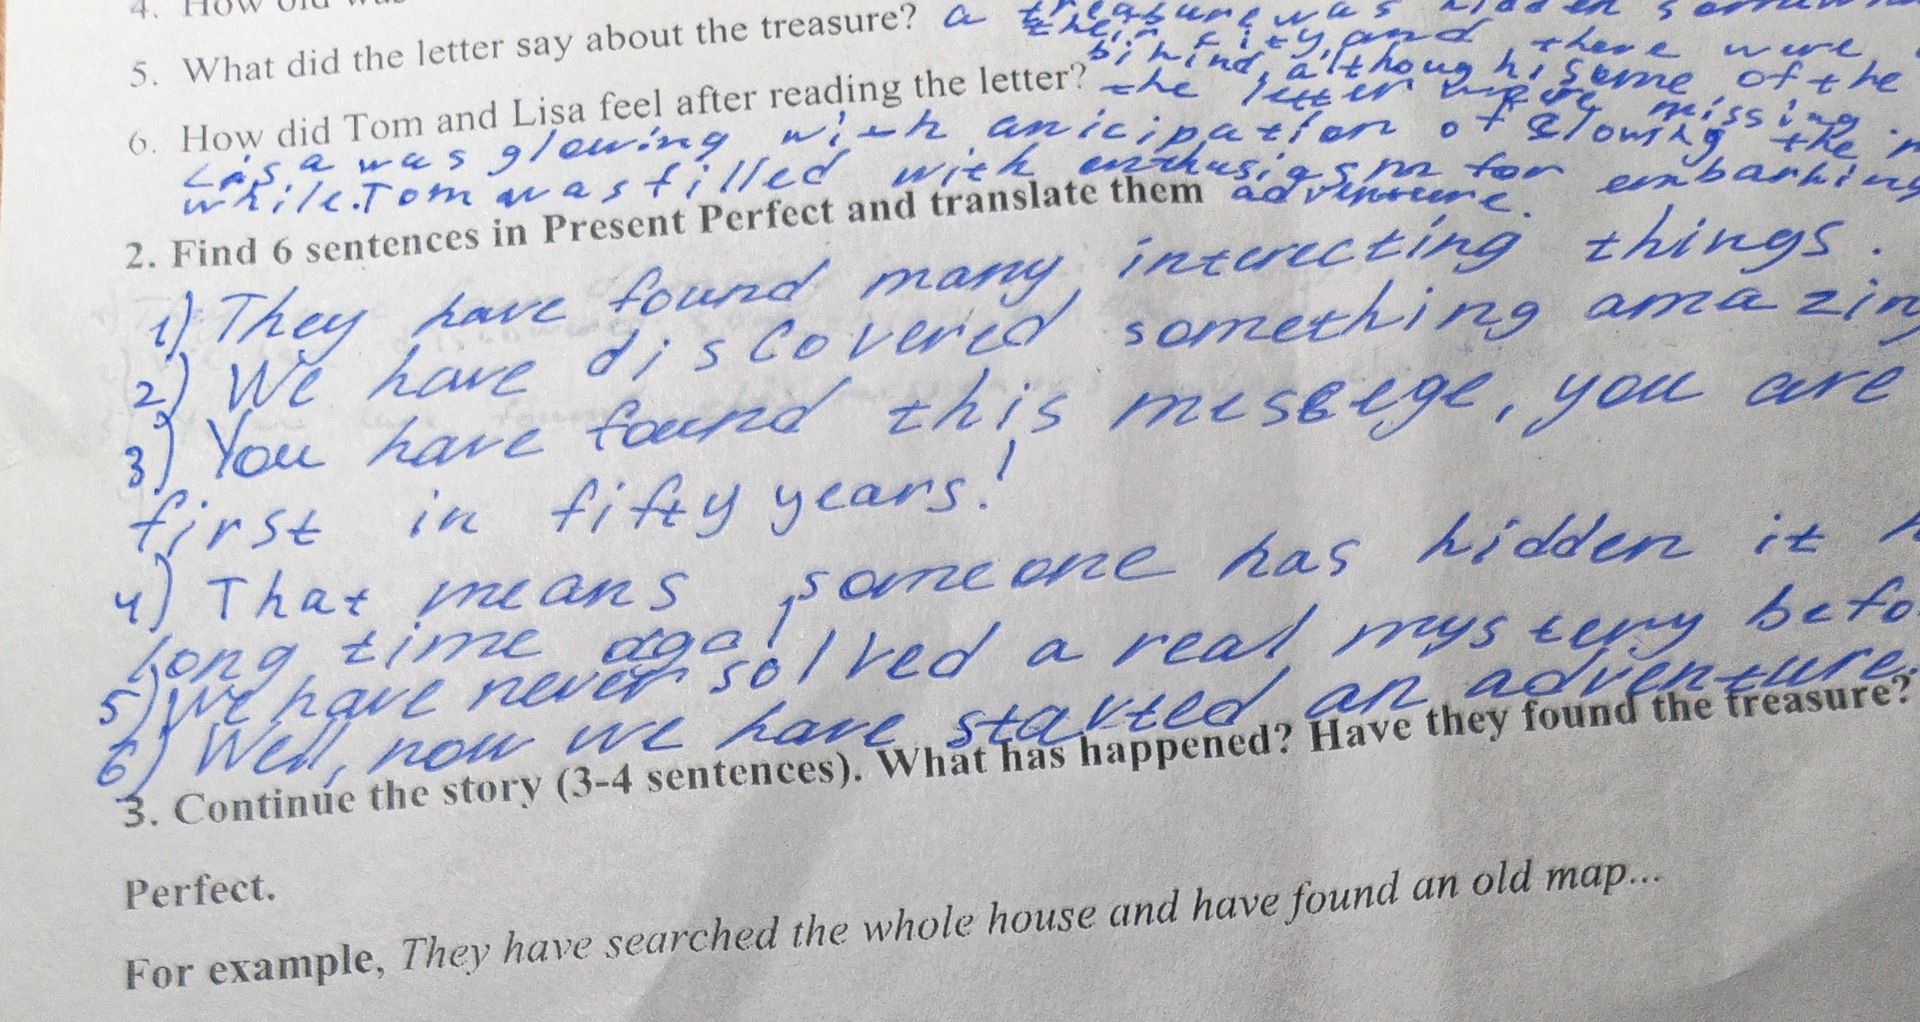 4. How old was
5. What did the letter say about the treasure? a treasure was hidden
their city, and there were
6. How did Tom and Lisa feel after reading the letter? bihind, although some of the
the letter were missing.
Lisa was glowing with anicipation of the
while.Tom was filled with enthusiasm for embarking
adventure.
2. Find 6 sentences in Present Perfect and translate them
1) They have found many interecting things.
2) We have discovered something amazin
3) You have found this messege, you are
first in fifty years!
4) That means someone has hidden it
long time ago!
5) We have never solved a real mystery befo
6) Well, now we have started an adventure.
3. Continue the story (3-4 sentences). What has happened? Have they found the treasure?
Perfect.
For example, They have searched the whole house and have found an old map...